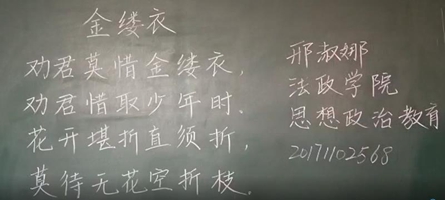 金缕衣
劝君莫惜金缕衣，
劝君惜取少年时、
花开堪折直须折，
莫待无花空折枝。
邢淑娜
法政学院
思想政治教育
20171102568